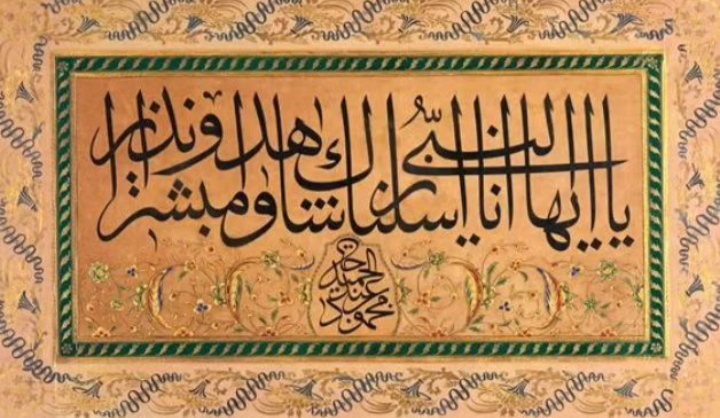 يا ايها النبيّ انا ارسلناك شاهدا ومبشرا ونذيرا
محمود بن عبد الحميد